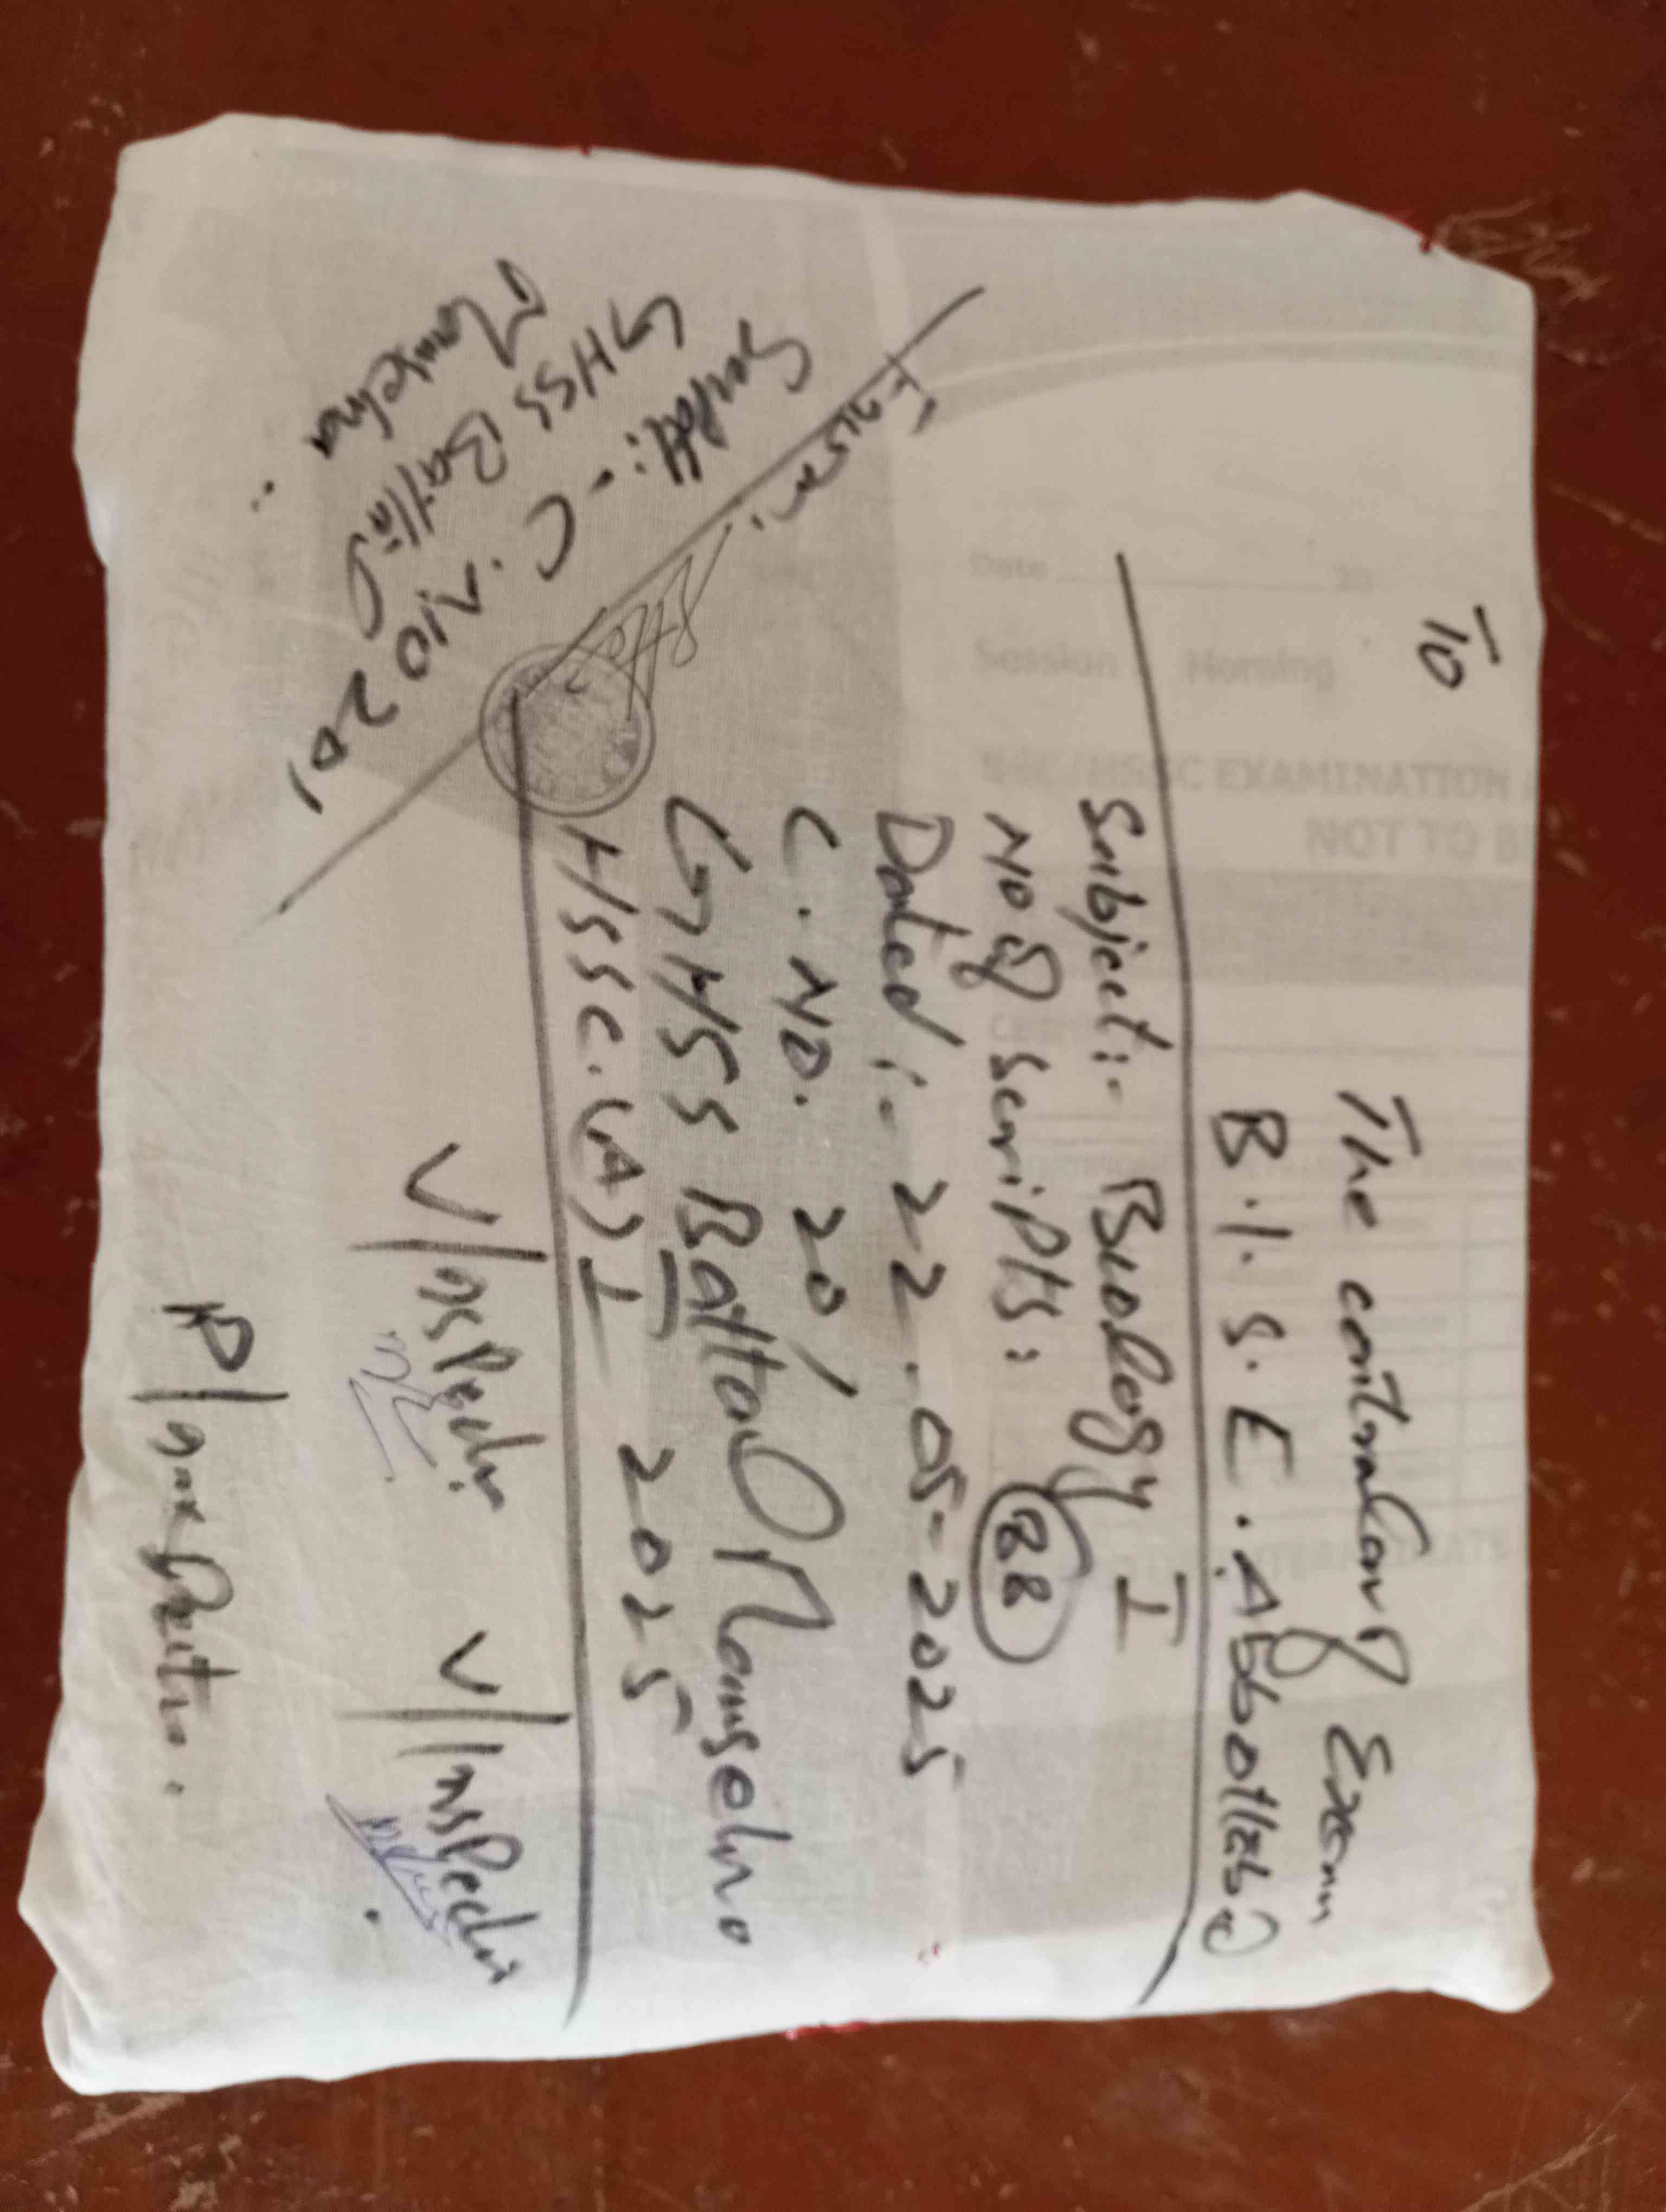 To
The controlar of Exam
B.I.S.E. Abbottabad
Subject:- Biology I
No of scripts: 88
Dated:- 22.05-2025
C.No. 201
GHSS Battal Mansehra
HSSC.(A) I 2025
V/Inspector V/Inspector
From:
Supdtt:- C.No 201
GHSS Battal
Mansehra
Date 20
Session Morning
HSSC EXAMINATION
NOT TO B